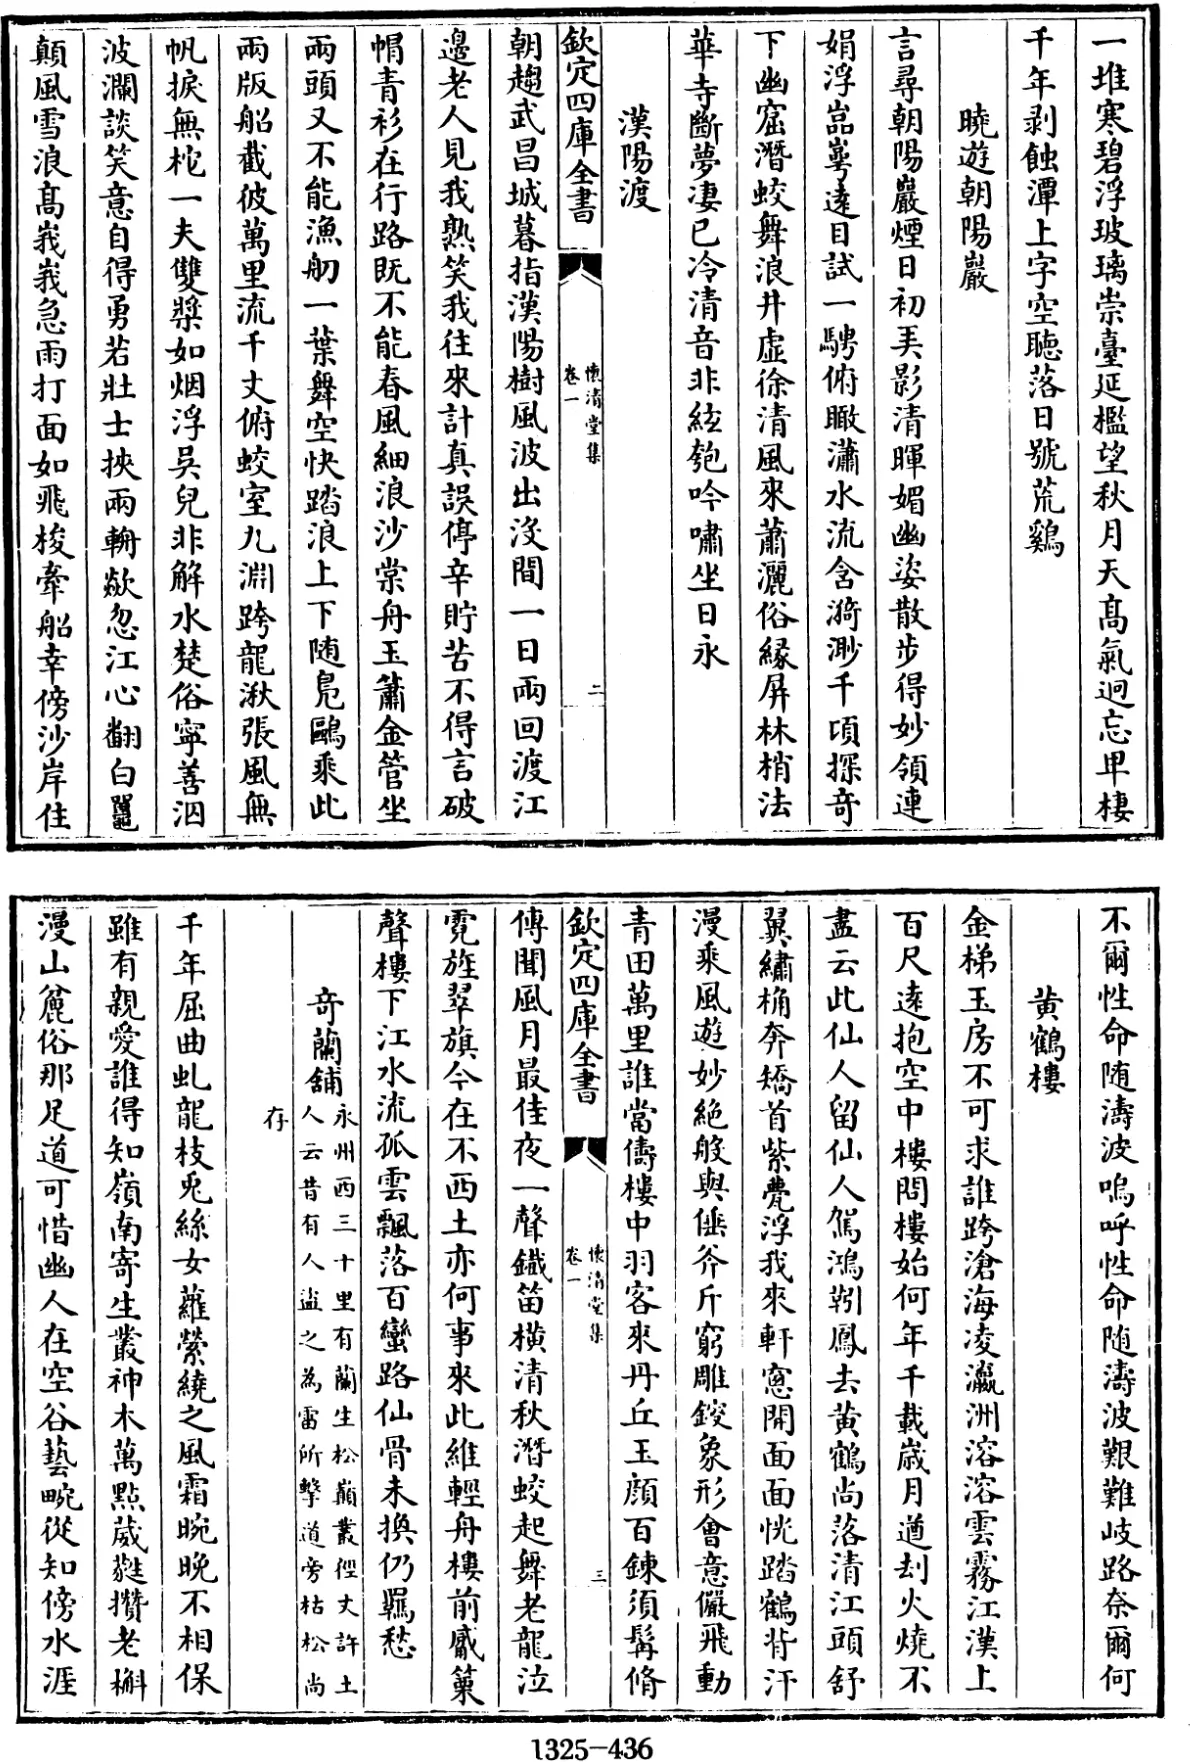 一堆寒碧浮玻璃崇臺延檻望秋月天髙氣迥忘卑棲
千年剥蝕潭上字空聴落日號荒鷄
曉遊朝陽巖
言尋朝陽巖煙日初美影清暉媚幽姿散步得妙領連
娟浮嵓嶤遠目試一騁俯瞰瀟水流含漪渺千頃探竒
下幽窟潛蛟舞浪井虛徐清風來蕭灑俗縁屏林梢法
華寺斷夢凄已冷清音非絃匏吟嘯坐日永
漢陽渡
欽定四庫全書
懷清堂集
卷一
二
朝趨武昌城暮指漢陽樹風波出沒間一日兩回渡江
邊老人見我熟笑我往來計真誤停辛貯苦不得言破
帽青衫在行路既不能春風細浪沙棠舟玉簫金管坐
兩頭又不能漁舠一葉舞空快踏浪上下随鳧鷗乘此
兩版船截彼萬里流千丈俯蛟室九淵跨龍湫張風無
帆捩無柁一夫雙槳如烟浮吳兒非解水楚俗寧善泅
波瀾談笑意自得勇若壯士挾兩輈歘忽江心翻白鼉
顛風雪浪髙峩峩急雨打面如飛梭牽船幸傍沙岸住
不爾性命随濤波嗚呼性命随濤波艱難岐路奈爾何
黄鶴樓
金梯玉房不可求誰跨滄海凌瀛洲溶溶雲霧江漢上
百尺遠抱空中樓問樓始何年千載歳月遒刦火燒不
盡云此仙人留仙人駕鴻鶵鳳去黄鶴尚落清江頭舒
翼繡桷奔矯首紫甍浮我來軒窻開面面恍踏鶴背汗
漫乘風遊妙絶般與倕斧斤窮雕鎪象形㑹意儼飛動
青田萬里誰當儔樓中羽客來丹丘玉顔百鍊須髯脩
欽定四庫全書
懷清堂集
卷一
三
傳聞風月最佳夜一聲鐵笛横清秋潛蛟起舞老龍泣
霓旌翠旗今在不西土亦何事來此維輕舟樓前咸篥
聲樓下江水流孤雲飄落百蠻路仙骨未換仍羈愁
竒蘭舖
永州西三十里有蘭生松巔叢徑丈許土
人云昔有人盜之為雷所擊道旁枯松尚
存
千年屈曲虬龍枝兎絲女蘿縈繞之風霜晼晚不相保
雖有親愛誰得知嶺南寄生叢神木萬㸃葳蕤攢老槲
漫山麄俗那足道可惜幽人在空谷藝畹從知傍水涯
1325-436